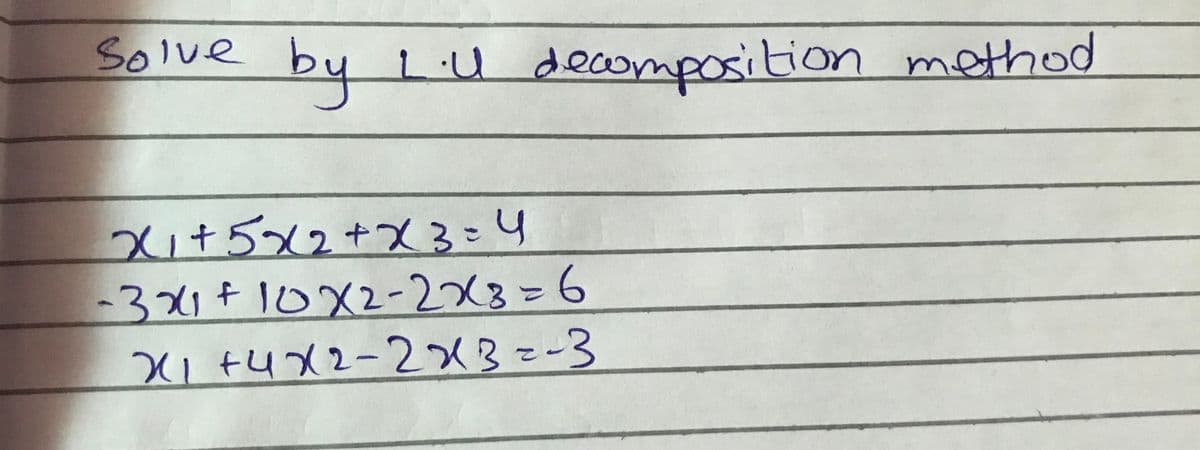 Solve by L.U decomposition method
x1+5x2+x3=4
-3x1+10x2-2x3=6
x1+4x2-2x3=-3